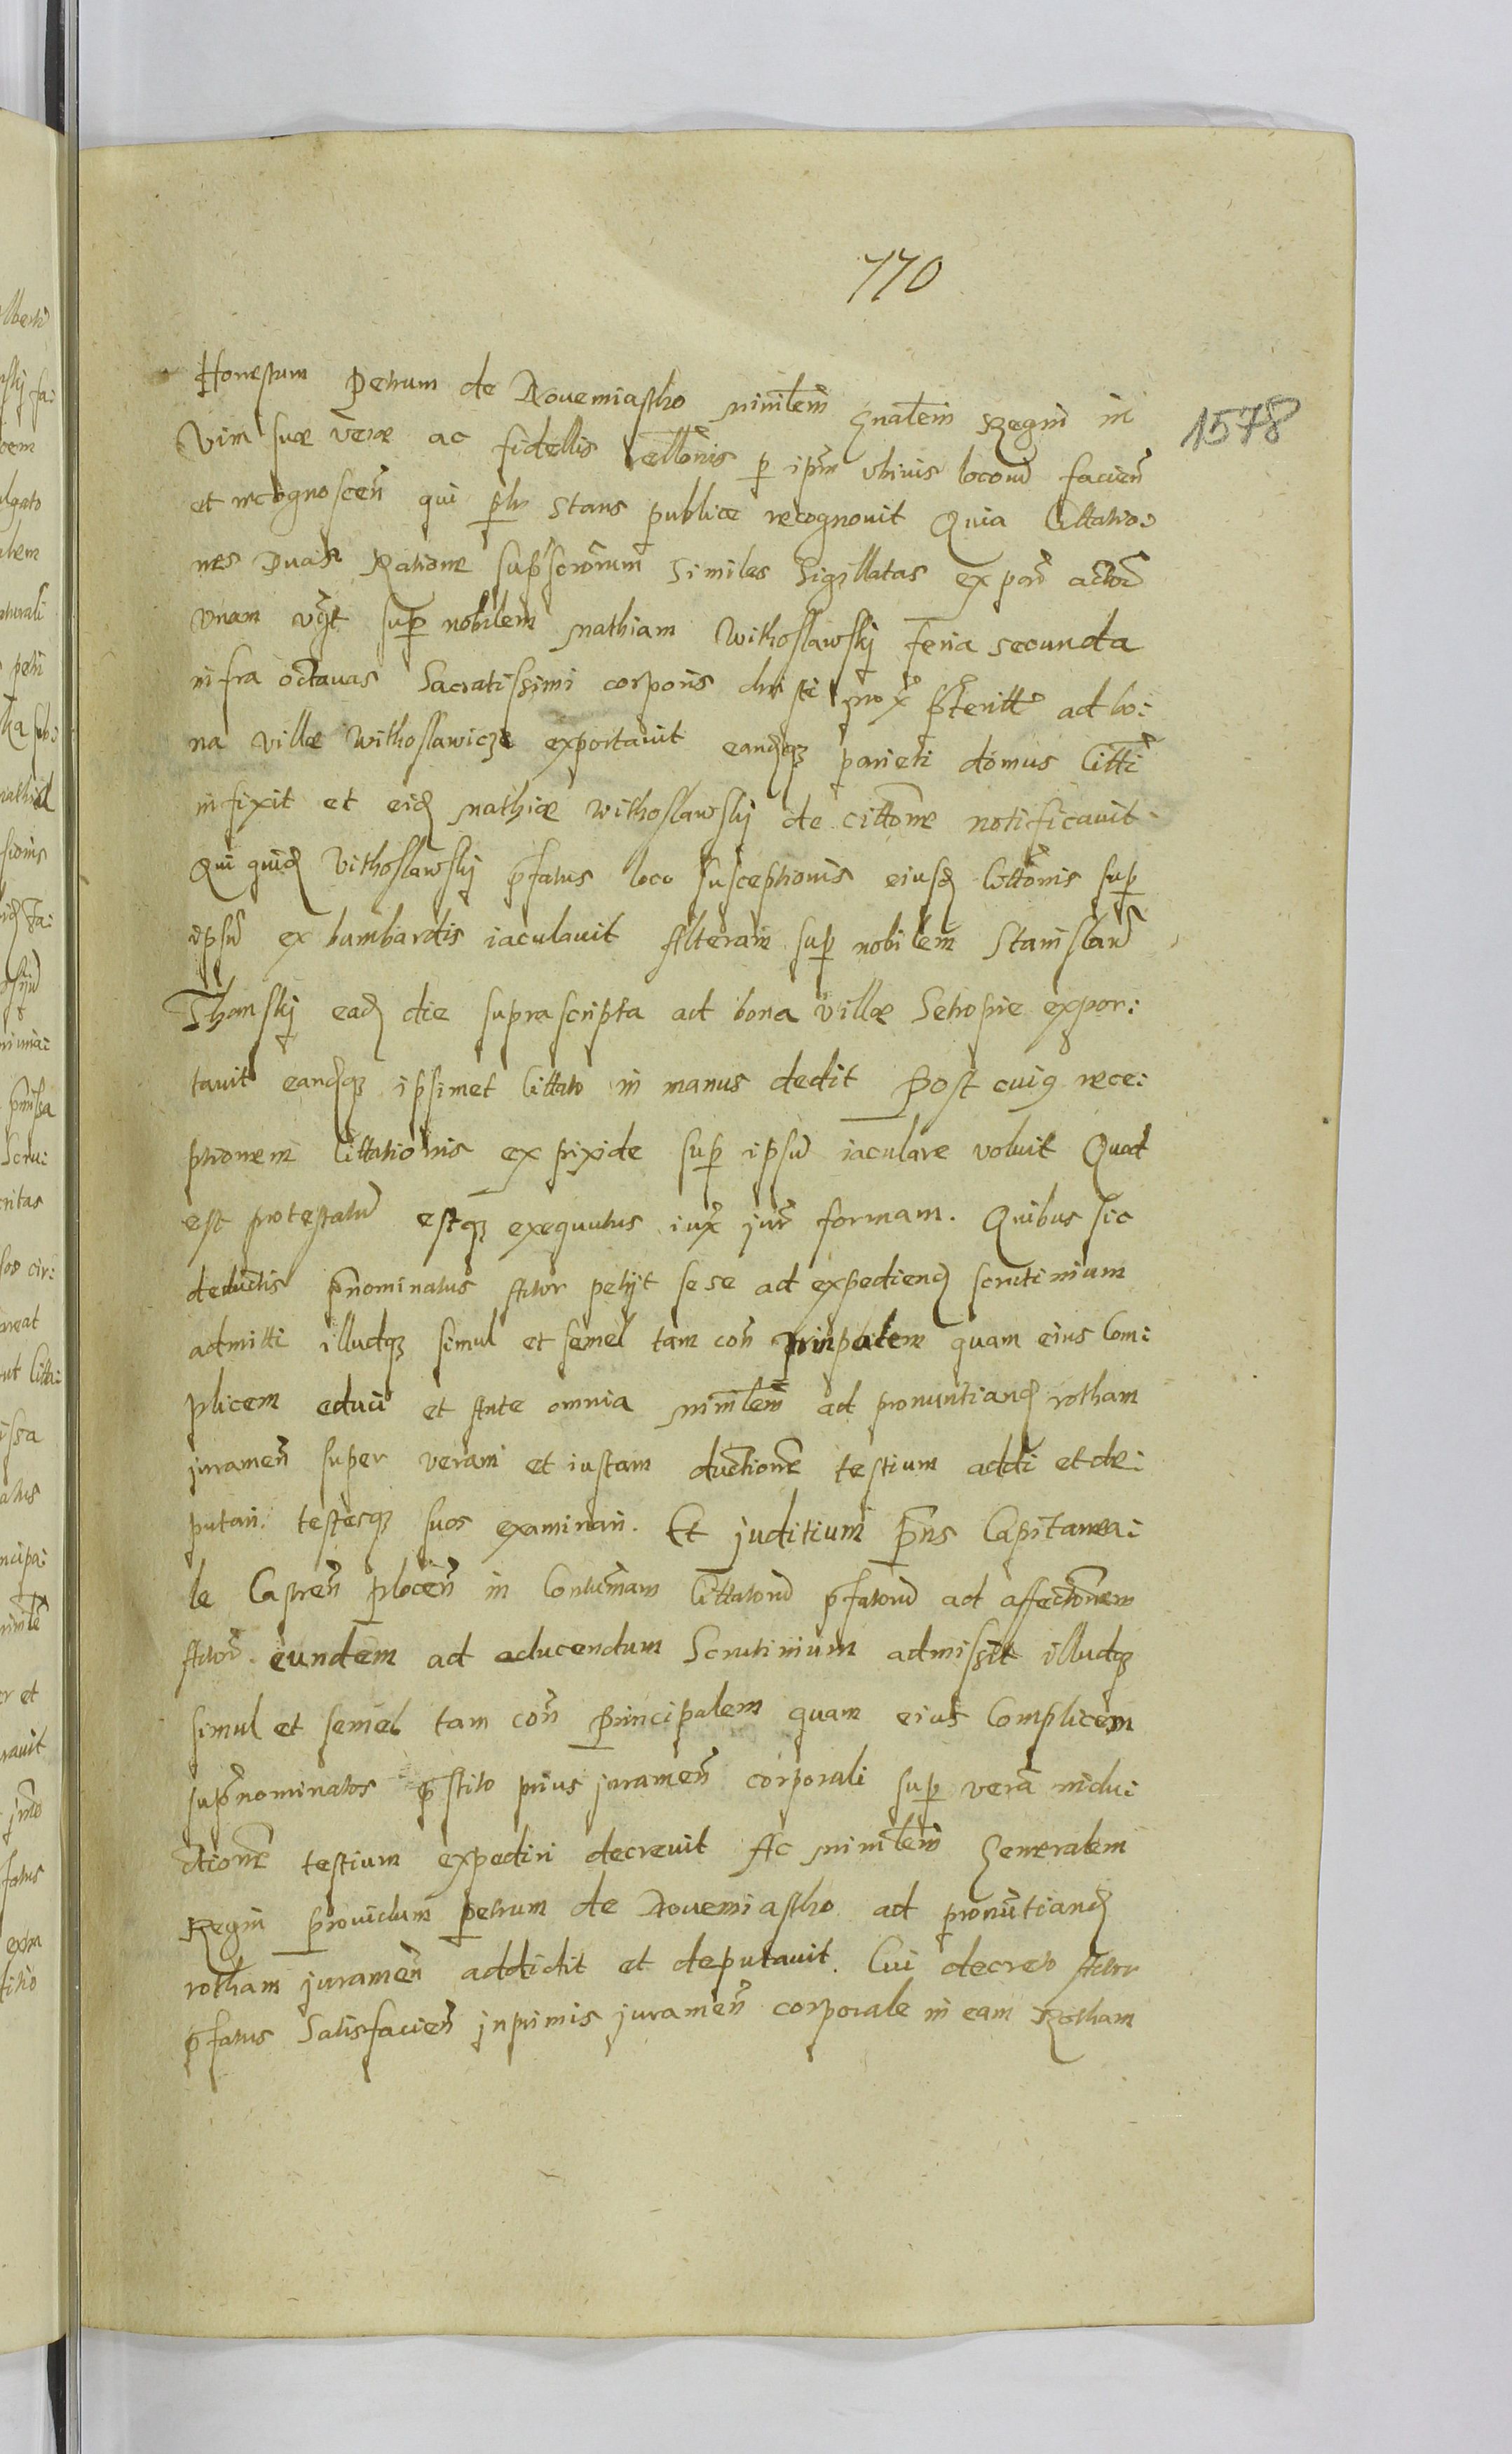 770
1578
Honestum Petrum de Novemiastho ministem Gnalem Regni in
vim suæ veræ ac fidellis rellonis p ipm vtrius locorū facien
et recognoscen qui phs stans publice recognovit Quia Cittatio:
nes Duas Ratione supscrorum similes sigillatas ex parte actor
vnam vgt sup nobilem Mathiam Withoslawskj feria secunda
infra octauas Sacratissimi corporis christi prox pteritt ad bo:
na villæ Withoslawicze exportauit eandqz parieti domus Citti
infixit et eid Mathiæ Withoslawskj de cittone notificauit
Qui quid Vithoslawskj pfatus loco susceptionis eiusd Cittonis sup
ipsū ex bumbardis iaculauit Alteram sup nobilem Stanislaū
Thanskj ead die suprascripta ad bona villæ Setropie expor:
tauit eandqz ipsimet Cittato in manus dedit Post cuig rece:
ptionem Cittationis ex pixide sup ipsū iaculare voluit Quod
est protestatū estqz exequutus iux jur formam. Quibus sic
deductis pnominatus Actor petijt se se ad expediend scrutinium
admitti illudqz simul et semel tam con prinpalem quam eius Com:
plicem educi et Ante omnia minlem ad pronuntiand rotham
juramen super veram et iustam ductione testium addi et de:
putari. testesqz suos examinari. Et juditium pns Capitanea:
le Castren plocen in Contumam Cittatorū pfatorū ad affectonem
Actor eundem ad educendum Scrutinium admissit illudqz
simul et semel tam con Principalem quam eius Complicem
supnominatos pstito prius juramen corporali sup verā indu:
ctione testium expediri decreuit Ac minlem Generalem
Regni prouidum petrum de Novemiastho ad pronuntiand
rotham juramen addidit et deputauit. Cui decreto Actor
pfatus Satisfacien inprimis juramen corporale in eam Rotham